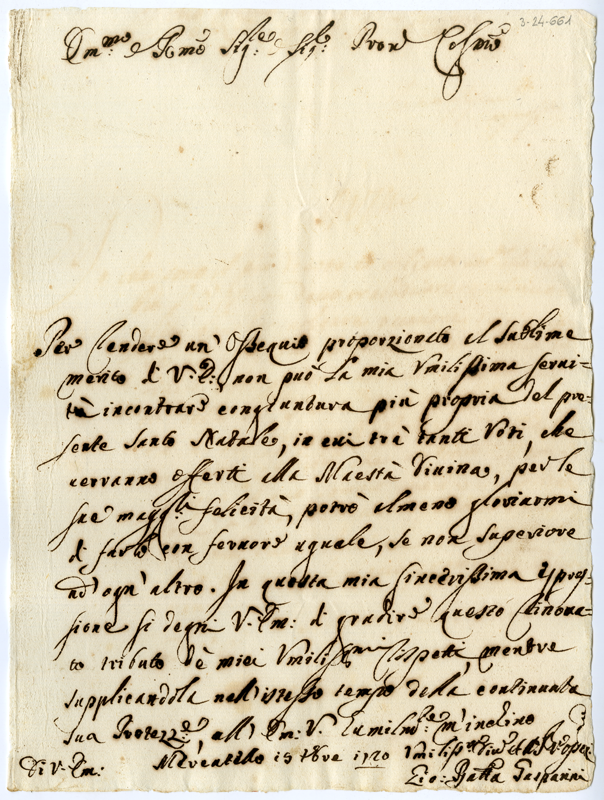 3-24-661
Em:mo e Rmo Sig:re e Sig:re Pron
Per rendere un' Ossequio proporzionato al sublime
merito di V: E: non può la mia Vmilissima servi-
tù incontrare congiuntura più propria del pre-
sente Santo Natale, in cui trà tanti Voti, che
verranno offerti alla Maestà Divina, per le
sue magg:ri felicità, potrò almeno gloriarmi
di farlo con fervore uguale, se non superiore
ad ogn' altro. In questa mia sincerissima espres-
sione si degni V: Em: di gradire questo rinova-
to tributo de miei Vmiliss:mi rispetti, mentre
supplicandola nell' istesso tempo della continuata
sua Protezz:e all' Em: V: humilm:te m' inchino
Di V: Em: 1720 Vmiliss:
Gio: Batta Gasparini